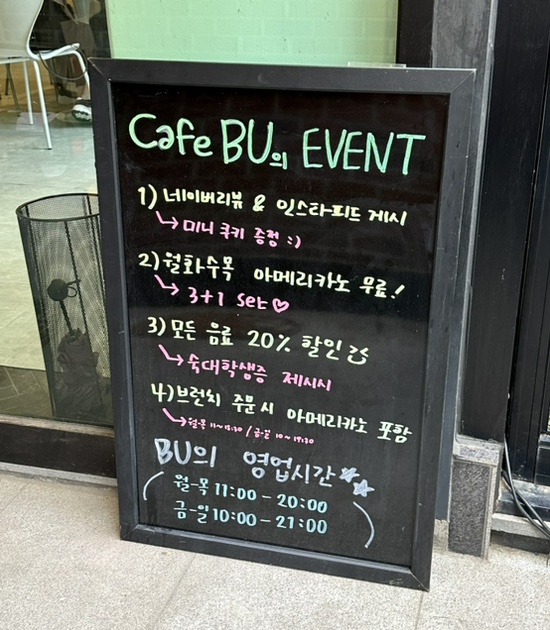 Cafe BU의 EVENT
1) 네이버리뷰 & 인스타피드 게시
↳ 미니 쿠키 증정 :)
2) 월화수목 아메리카노 무료!
↳ 3+1 set ♡
3) 모든 음료 20% 할인
↳ 숙대학생증 제시시
4) 브런치 주문시 아메리카노 포함
↳ 월-목 11~18:30 / 금-일 10~19:30
BU의 영업시간
월-목 11:00 - 20:00
금-일 10:00 - 21:00